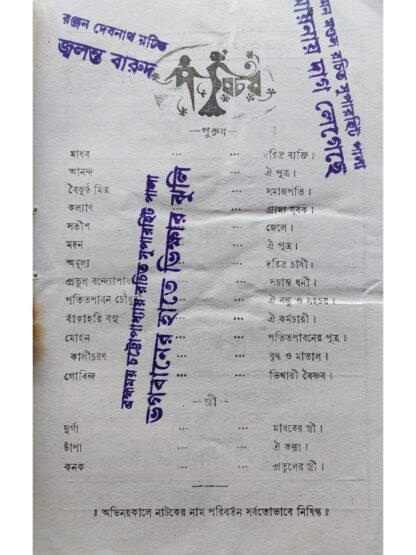 রঞ্জন দেবনাথ রচিত
জ্বলন্ত বারুদ
রচিত সুপারহিট পালা
আয়নায় দাগ লেগেছে
—পুরুষ—
মাধব ... ... দরিদ্র ব্যক্তি।
আনন্দ ... ... ঐ পুত্র।
বৈকুণ্ঠ মিত্র ... সমাজপতি।
কল্যাণ ... ... গ্রাম্য যুবক।
সতীশ ... জেলে।
মদন ... ঐ পুত্র।
অমূল্য ... দরিদ্র চাষী।
প্রতুল বন্দ্যোপাধ্যায় ... সম্ভ্রান্ত ধনী।
পতিতপাবন চৌধুরী ... ঐ বন্ধু ও সহচর।
বাঁকাহরি বসু ... ঐ কর্মচারী।
মোহন ... ... পতিতপাবনের পুত্র।
কালীচরণ ... ... বৃদ্ধ ও মাতাল।
গোবিন্দ ... ... ভিখারী বৈষ্ণব।
ব্রহ্মময় চট্টোপাধ্যায় রচিত সুপারহিট পালা
ভগবানের হাতে ভিক্ষার ঝুলি
—স্ত্রী—
দুর্গা ... ... মাধবের স্ত্রী।
চাঁপা ... ... ঐ কন্যা।
কনক ... ... প্রতুলের স্ত্রী।
॥ অভিনয়কালে নাটকের নাম পরিবর্তন সর্বতোভাবে নিষিদ্ধ ॥